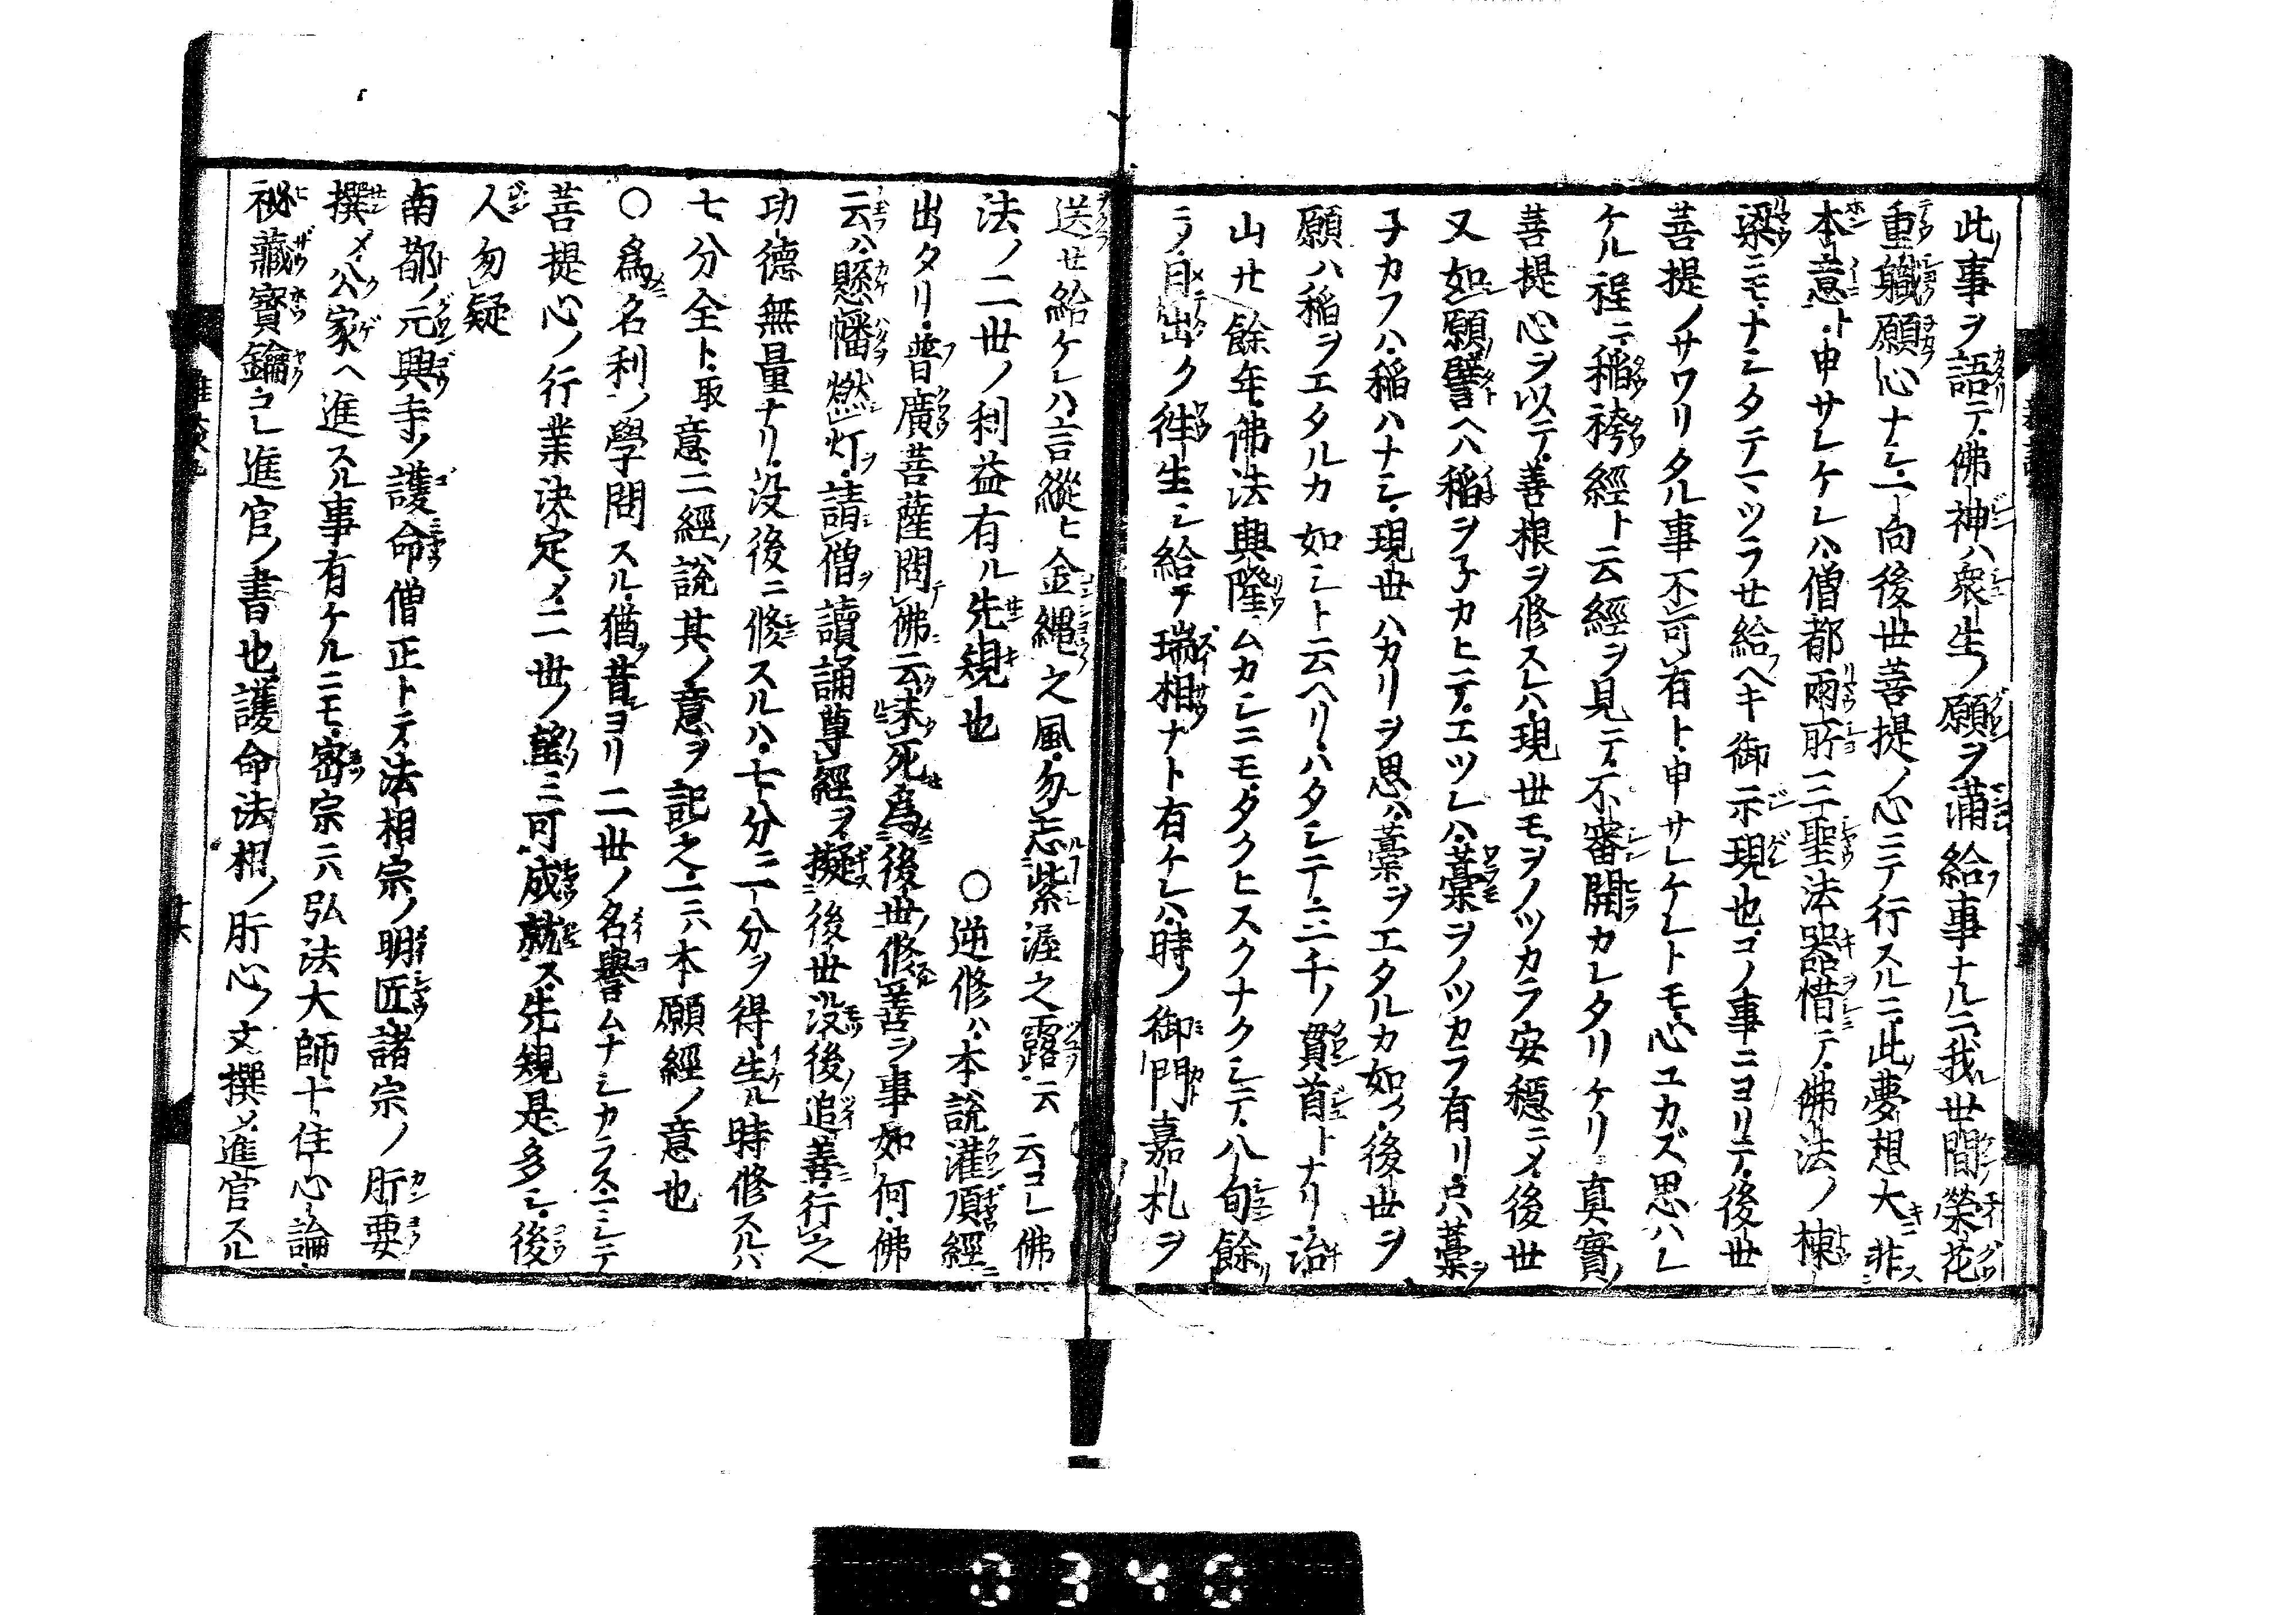 此ノ事ヲ語テ佛神ハ衆生ノ願ヲ滿給フ事ナルニ我レ世間ノ榮花
重職願心ナシ一向後世菩提ノ心ニテ行スルニ此夢想大キニ非ス
本意ト申サレケレハ僧都兩所三聖法器惜テ佛法ノ棟
梁ニモナシタテマツラセ給フヘキ御示現也コノ事ニヨリテ後世
菩提ノサワリタル事不可有ト申サレケレトモ心ユカズ思ハレ
ケル程ニ稲稈經ト云經ヲ見テ不審開カレタリケリ真實ノ
菩提心ヲ以テ善根ヲ修スレハ現世モヲノツカラ安穏ニメ後世
又如願譬ヘハ稲ヲ子カヒテエツレハ藁ヲノツカラ有リ只藁ヲ
子カフハ稲ハナシ現世ハカリヲ思ハ藁ヲエタルカ如ク後世ヲ
願ハ稲ヲエタルカ如シト云ヘリハタシテ三千ノ貫首トナリ治
山廿餘年佛法興隆ムカシニモタクヒスクナクシテ八旬餘リ
ニメ目出ク徃生シ給テ瑞相ナト有ケレハ時ノ御門嘉札ヲ
送セ給ケレハ言縱ヒ金縄之風勿忘紫渥之露云云コレ佛
法ノ二世ノ利益有ル先規也　○逆修ハ本說灌頂經ニ
出タリ普廣菩薩問佛云未死爲後世修善ヲ事如何佛
云ハ懸幡燃灯請僧讀誦尊經ヲ擬後世没後ノ追善行之
功德無量ナリ没後ニ修スルハ七分ニ一分ヲ得生ル時修スルハ
七分全ト取意二經ノ說其ノ意ヲ記之一二ハ本願經ノ意也
○爲名利ノ學問スル猶昔ヨリ二世ノ名譽ムナシカラス一ニシテ
菩提心ノ行業決定メ二世ノ望ミ可成就ス先規是多シ後
人勿疑
南都ノ元興寺ノ護命僧正トテ法相宗ノ明匠諸宗ノ肝要
撰メ公家ヘ進スル事有ケルニモ密宗ニハ弘法大師十住心論
祕藏寶鑰コレ進官ノ書也護命法相ノ肝心ノ文撰メ進官スル
0340